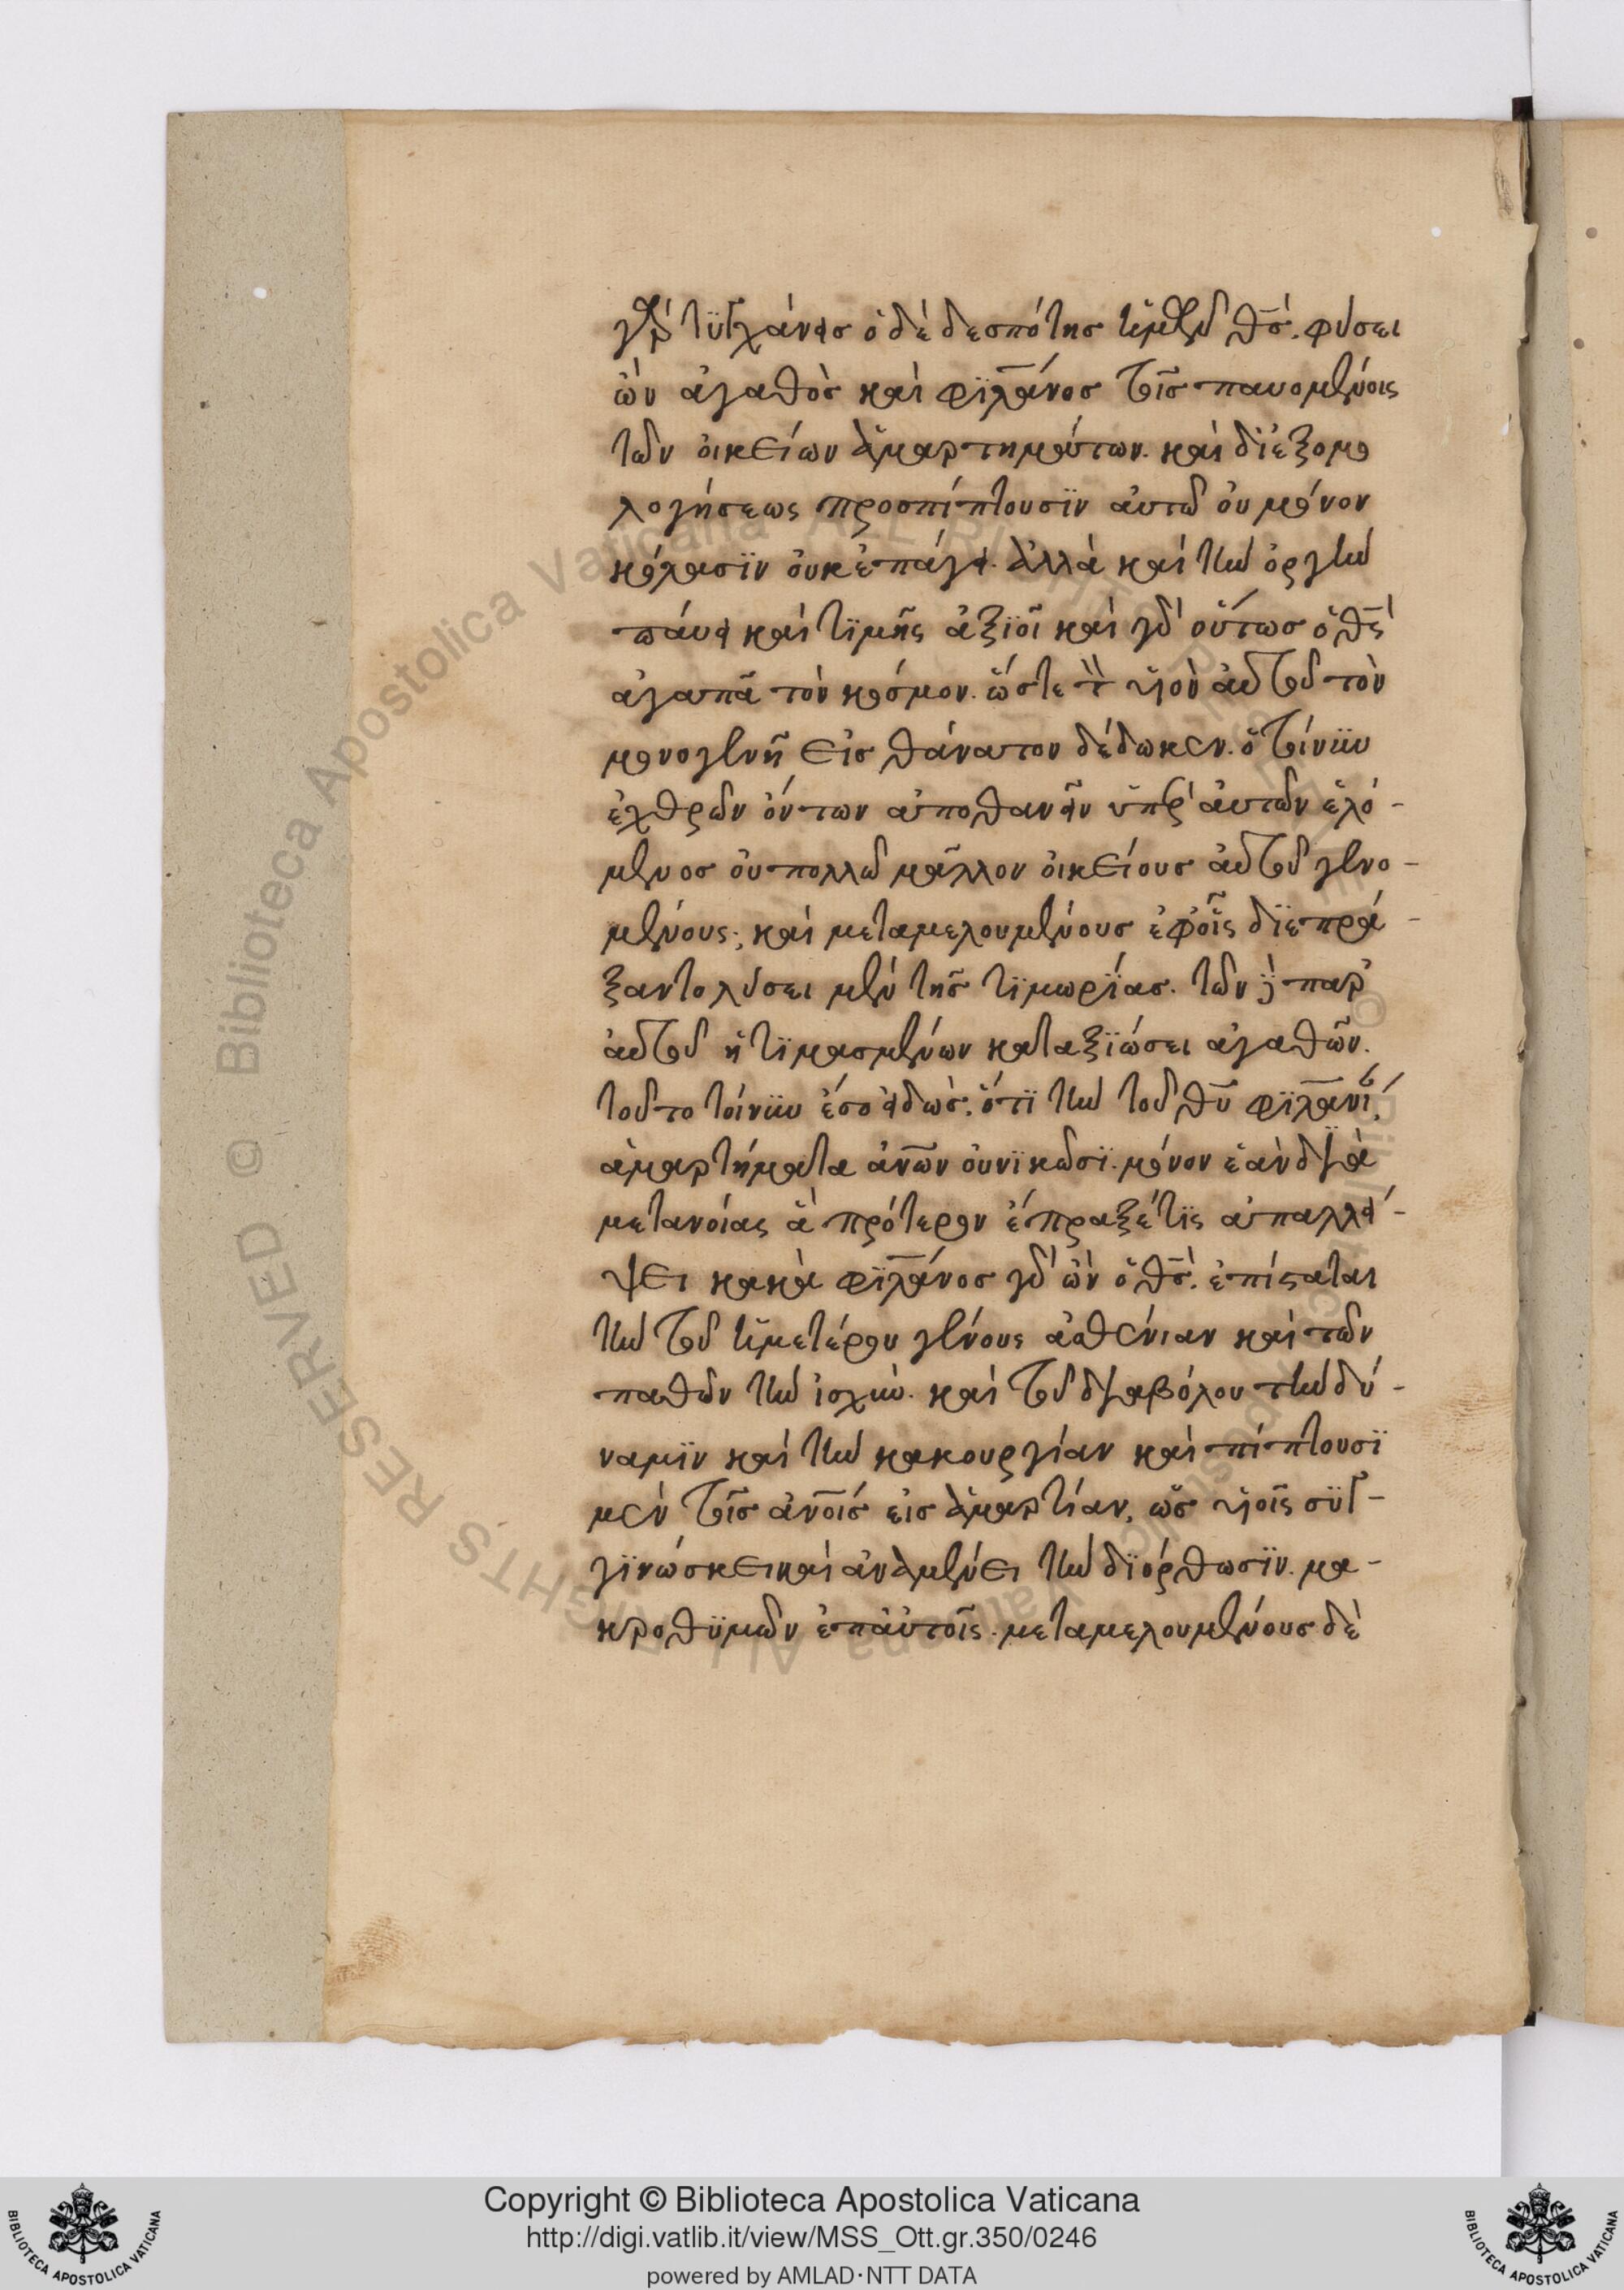 γὰρ τϋγχάνεισ ὁ δὲ δεσπότησ ἡμῶν θ̅σ̅. φύσει
ὢν ἀγαθὸσ καὶ φϊλα̅νοσ τοῖσ παυομένοις
τῶν οἰκείων ἁμαρτημάτων. καὶ δϊ ἐξομο
λογήσεως προσπίπτουσϊν ἀυτῶ ὀυ μόνον
κόλασϊν ὀυκ ἐπάγει. ἀλλὰ καὶ τὴν ὀργὴν
πάυει καὶ τϊμῆς ἀξϊοῖ καὶ γὰρ οὕτωσ ὁ θ̅ς̅
ἀγαπᾶ τὸν κόσμον. ὥστε τὸν υἱὸν ἀυτοῦ τὸν
μονογενῆ εἰσ θάνατον δέδωκεν. ὁ τοίνϋν
ἐχθρῶν ὄντων ἀποθανεῖν ὑπὲρ ἀυτῶν ἑλό-
μενοσ ὀυ πολλῶ μᾶλλον ὀικείουσ ἀυτοῦ γενο-
μένους; καὶ μεταμελουμένουσ ἐφ οἷς δϊεπρά-
ξαντο λύσει μὲν τῆσ τϊμωρΐασ. τῶν δὲ παρ
ἀυτοῦ ἡτϊμασμένων καταξϊώσει ἀγαθῶν.
τοῦτο τοίνϋν ἔσο εἰδὼσ. ὅτϊ τὴν τοῦ θ̅υ̅ φϊλα̅νΐ,
ἁμαρτήματα ἀν̅ων ὀυ νϊκῶσϊ. μόνον ἐὰν δϊὰ
μετανοίας ἃ πρότερον ἔπραξέ τϊς ἀπαλλεί-
ψει κακὰ φϊλα̅νοσ γὰρ ὢν ὁ θ̅σ̅. ἐπίσταται
τὴν τοῦ ἡμετέρου γένους ἀσθένιαν καὶ τῶν
παθῶν τὴν ἰσχϋν. καὶ τοῦ δϊαβόλου τὴν δύ-
ναμϊν καὶ τὴν κακουργίαν καὶ πίπτουσϊ
μὲν τοῖσ ἀν̅οισ εἰσ ἁμαρτίαν, ὡσ υἱοῖς σϋγ-
γϊνώσκει καὶ ἀναμένει τὴν δϊόρθωσϊν. μα-
κροθϋμῶν ἐπ ἀυτοῖς. μεταμελουμένουσ δὲ
Copyright © Biblioteca Apostolica Vaticana
http://digi.vatlib.it/view/MSS_Ott.gr.350/0246
powered by AMLAD·NTT DATA